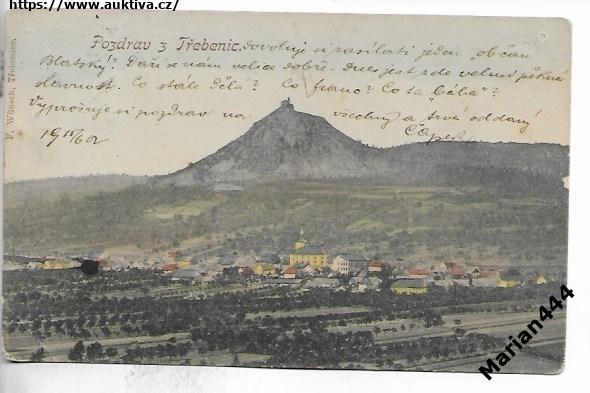 https://www.auktiva.cz/
Pozdrav z Třebenic. Dovoluji si zasílati jeden „občan
Blatský". Daří se nám velice dobře. Dnes jest zde velmi pěkná
slavnost. Co stále dělá? Co franc? Co ta „béba"?
Vyprošuje si pozdrav na všechny a tvůj oddaný
19 /602
F. Wünsch, Třebenice.
Marian444